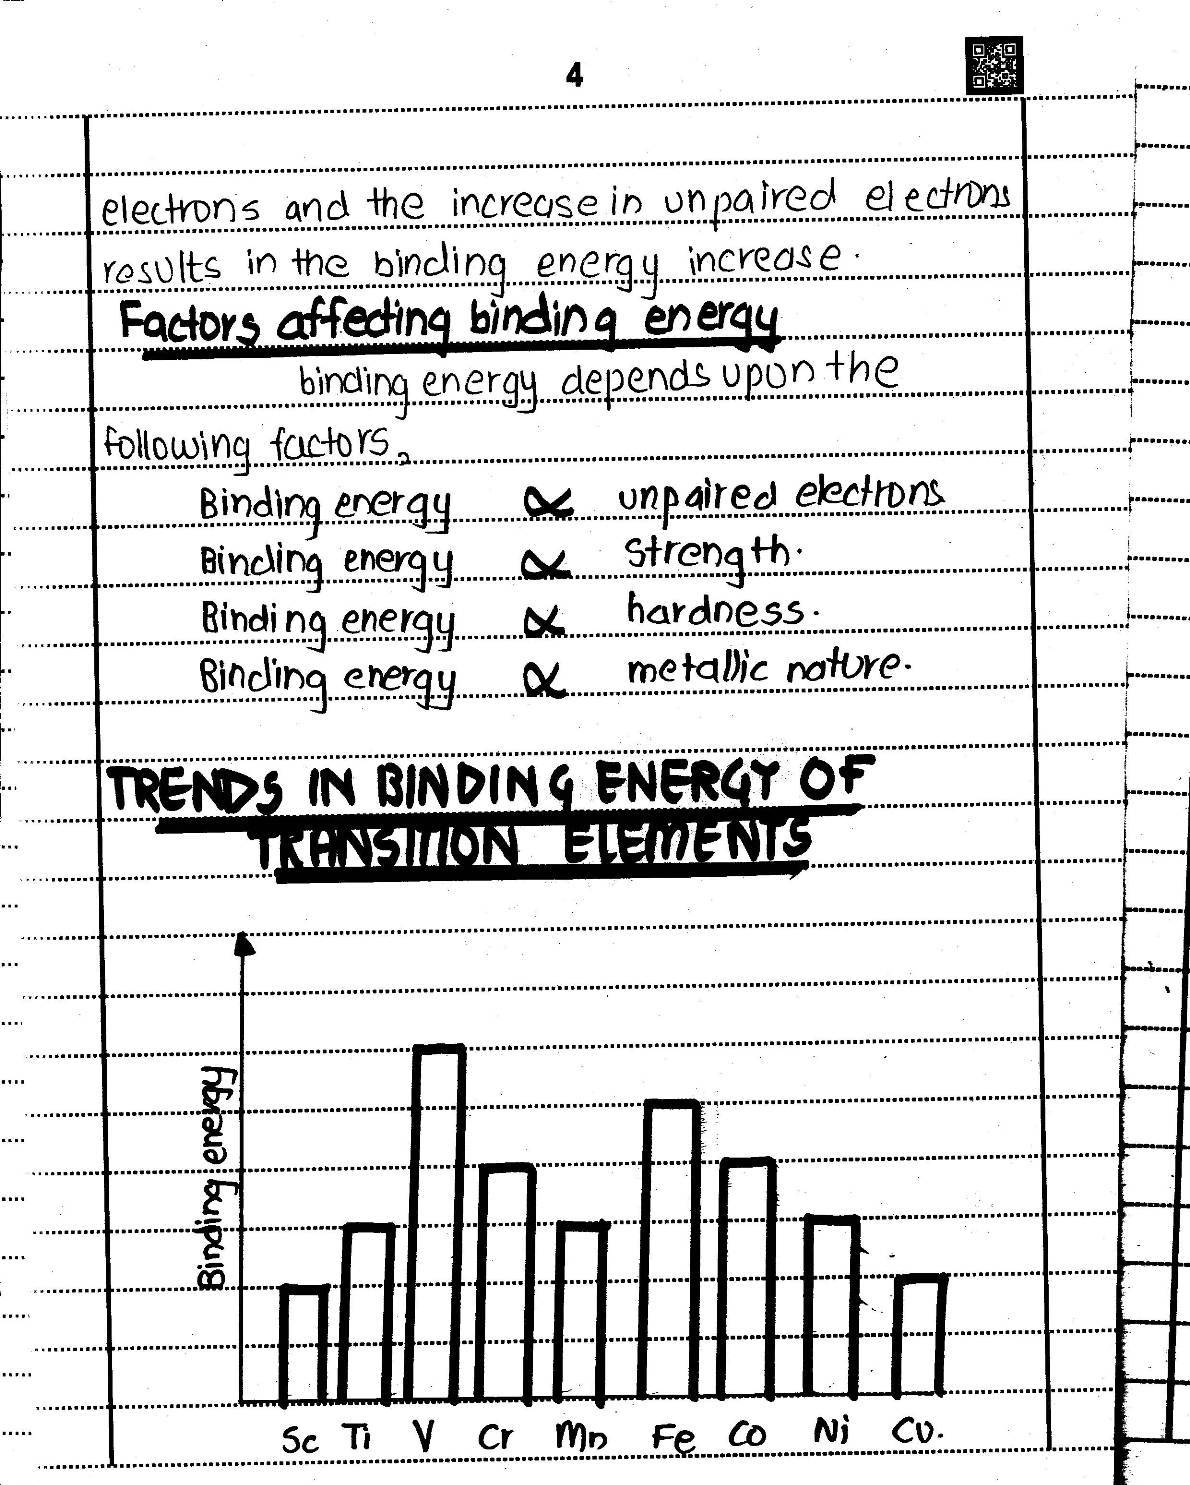 4
electrons and the increase in unpaired electrons
results in the binding energy increase.
Factors affecting binding energy
binding energy depends upon the
following factors,
Binding energy ∝ unpaired electrons
Binding energy ∝ strength.
Binding energy ∝ hardness.
Binding energy ∝ metallic nature.
TRENDS IN BINDING ENERGY OF
TRANSITION ELEMENTS
Binding energy
Sc Ti V Cr Mn Fe Co Ni Cu.